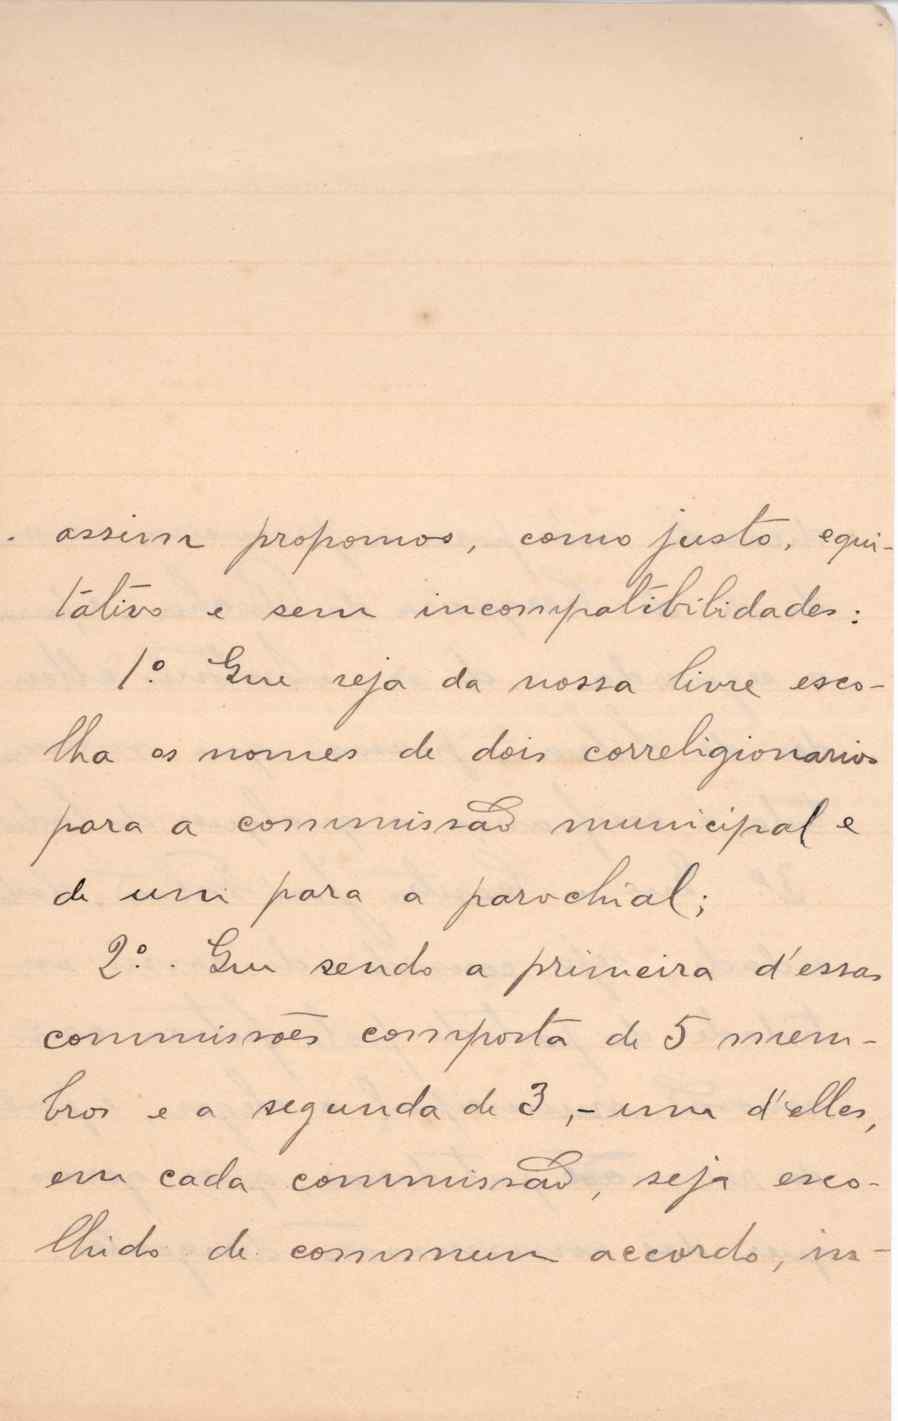 assim propomos, como justo, equi-
tativo e sem incompatibilidades:
1º. Que seja da nossa livre esco-
lha os nomes de dois correligionarios
para a commissão municipal e
de um para a parochial;
2º. Que sendo a primeira d'essas
commissões composta de 5 mem-
bros e a segunda de 3, - um d'elles,
em cada commissão, seja esco-
lhido de commum accordo, in-